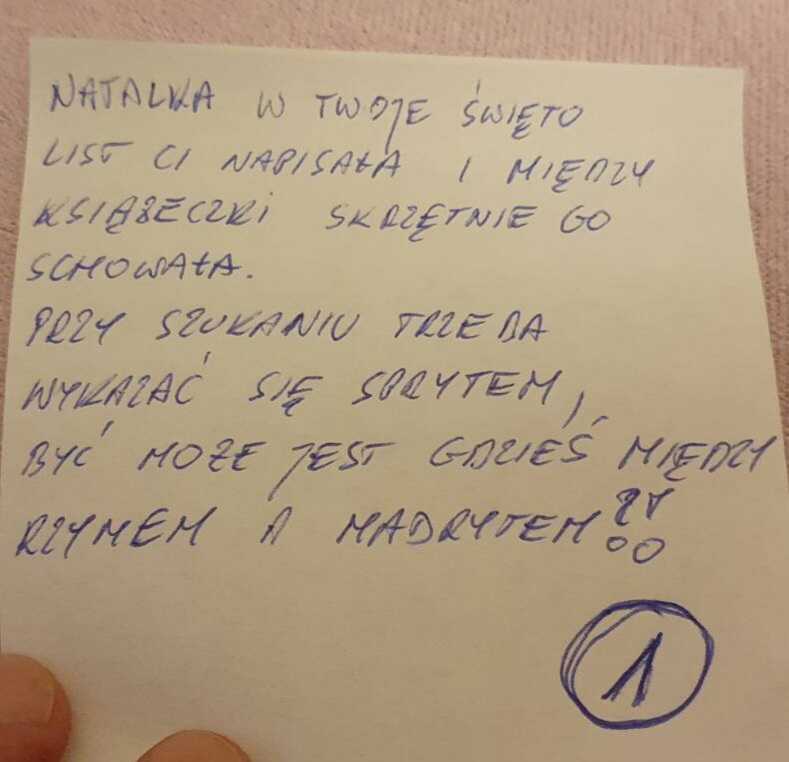 NATALKA W TWOJE ŚWIĘTO
LIST CI NAPISAŁA I MIĘDZY
KSIĄŻECZKI SKRZĘTNIE GO
SCHOWAŁA.
PRZY SZUKANIU TRZEBA
WYKAZAĆ SIĘ SPRYTEM,
BYĆ MOŻE JEST GDZIEŚ MIĘDZY
RZYMEM A MADRYTEM?!
1